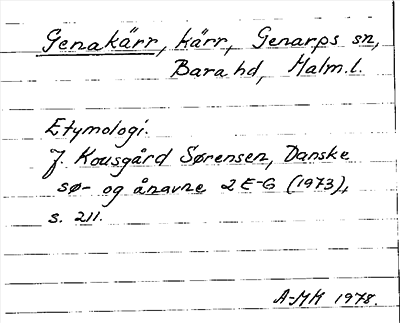 Genakärr, kärr, Genarps sn,
Bara hd, Malm.l.
Etymologi.
J. Kousgård Sørensen, Danske
sø- og ånavne 2 E-G (1973),
s. 211.
A-MH 1978.